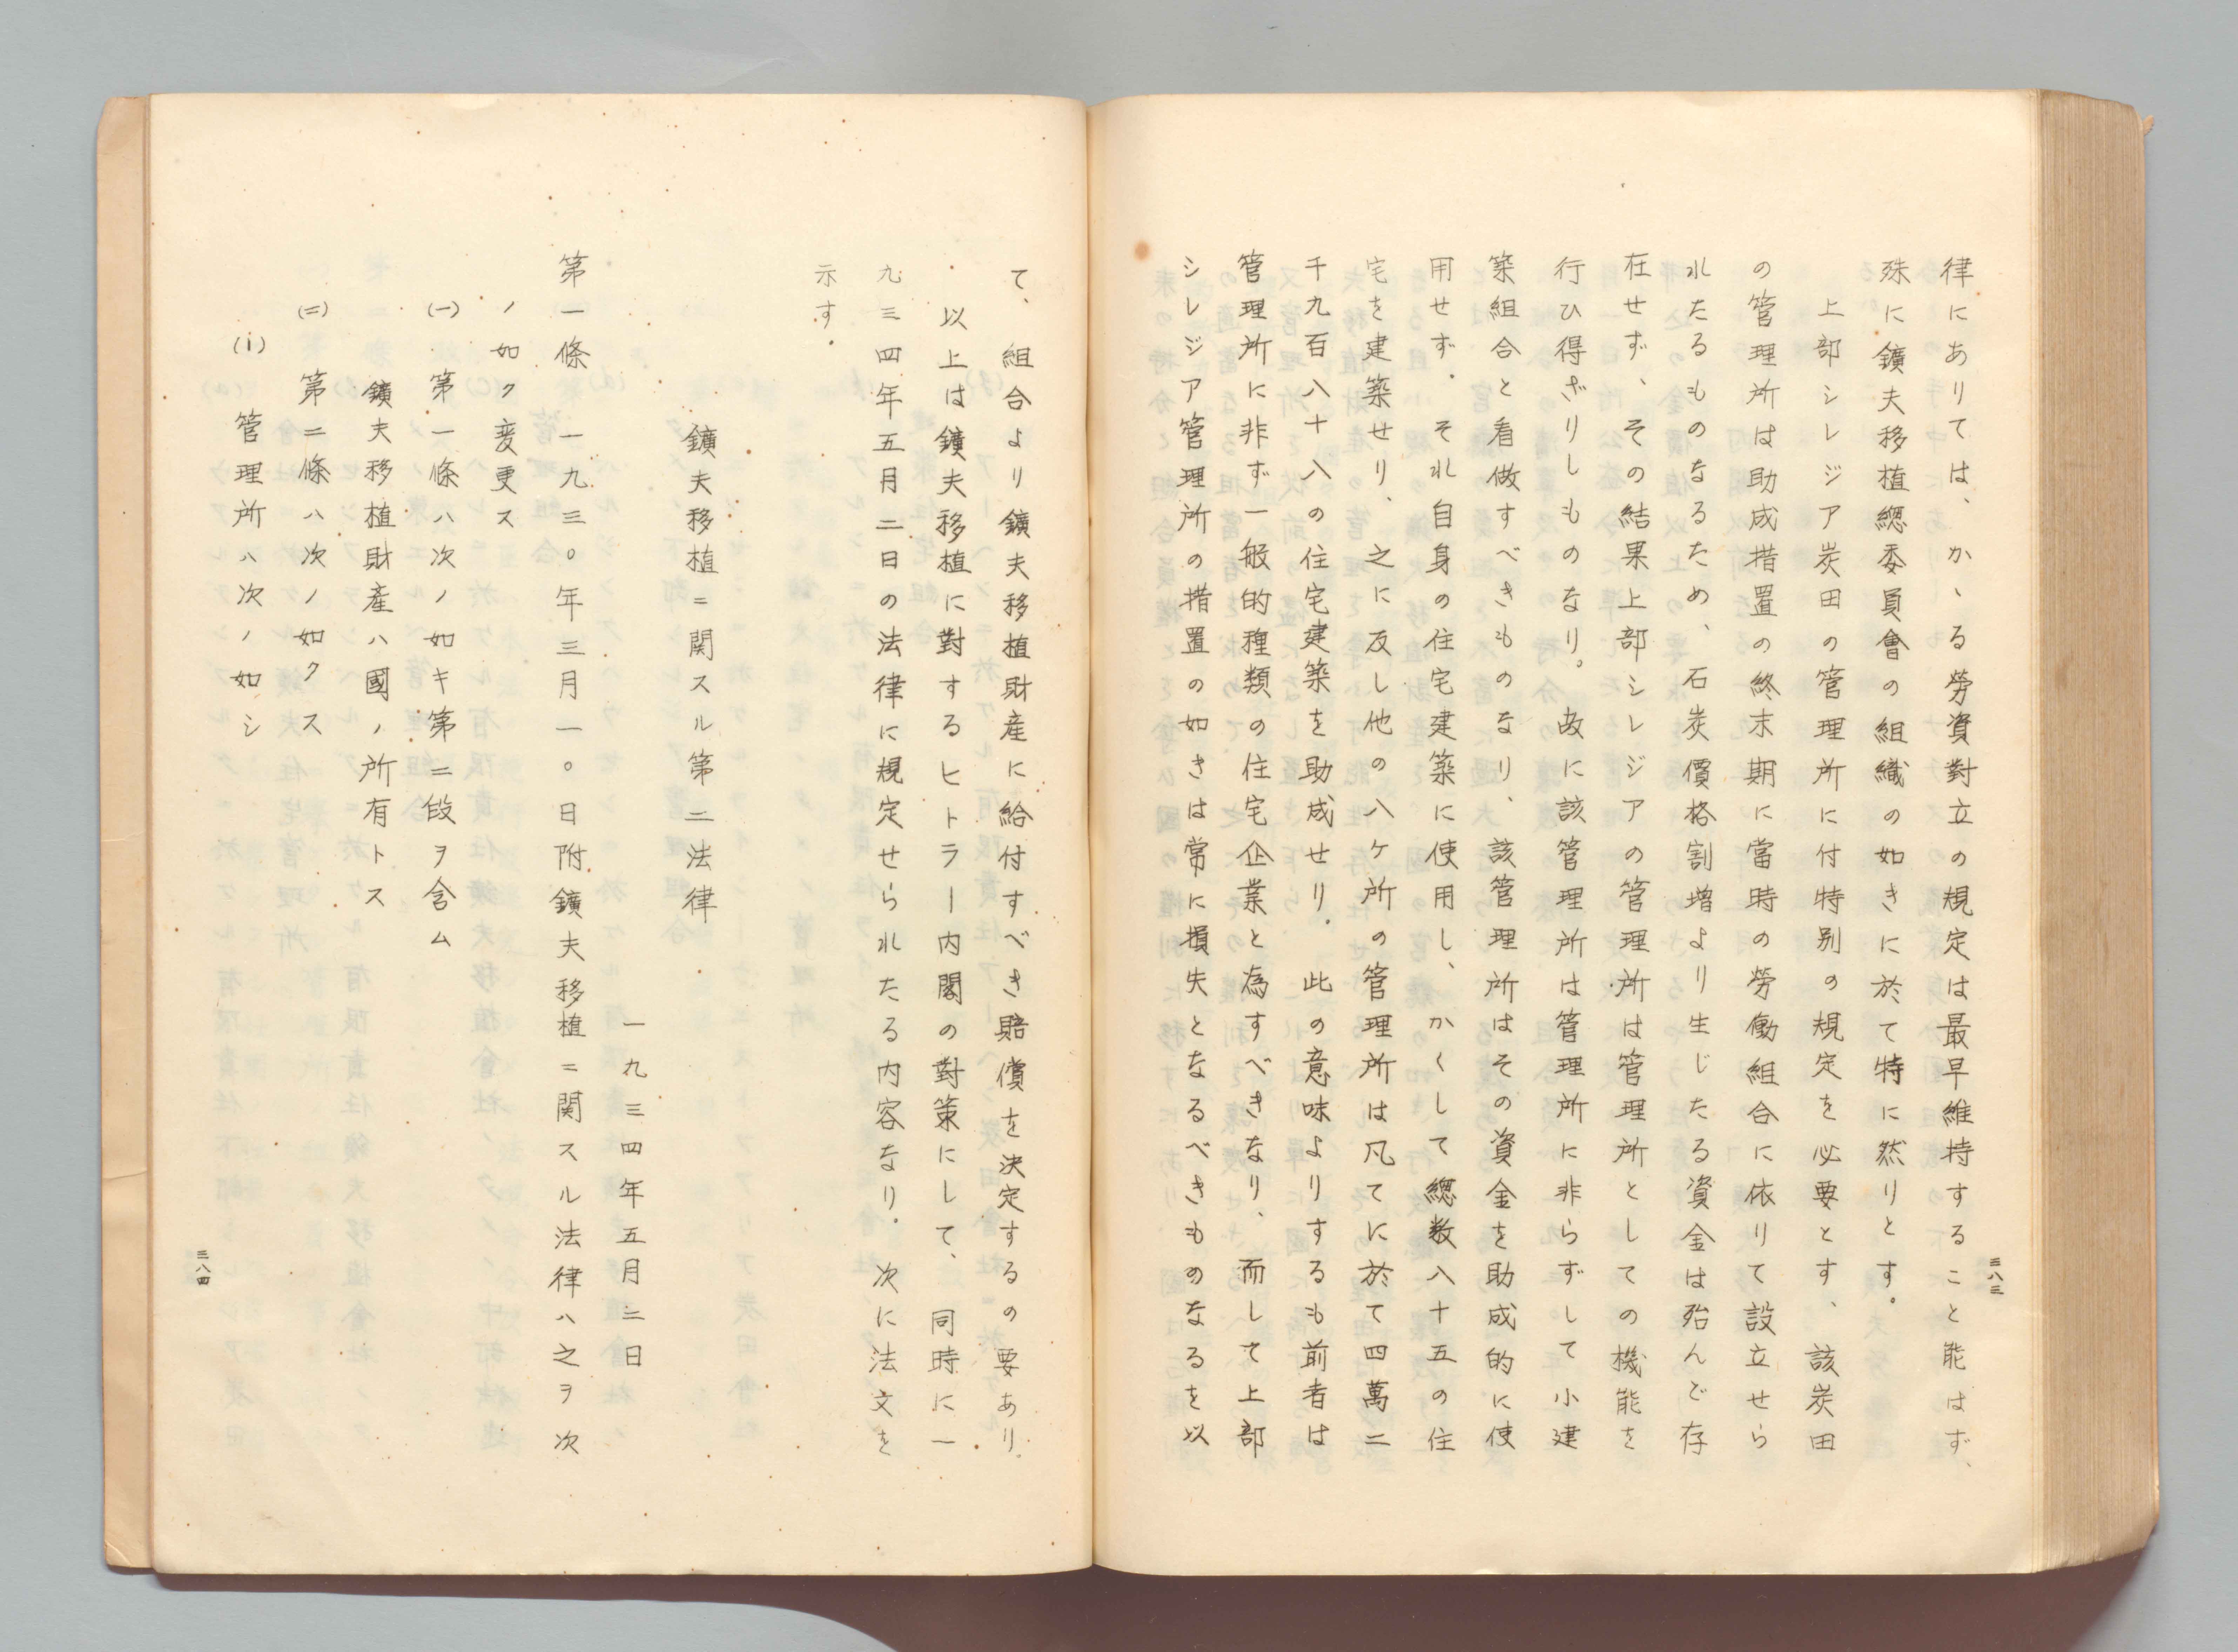 三八三
律にありては、かゝる勞資對立の規定は最早維持すること能はず、
殊に鑛夫移植總委員會の組織の如きに於て特に然りとす。
上部シレジア炭田の管理所に付特別の規定を必要とす、該炭田
の管理所は助成措置の終末期に當時の勞働組合に依りて設立せら
れたるものなるため、石炭價格割増より生じたる資金は殆んど存
在せず、その結果上部シレジアの管理所は管理所としての機能を
行ひ得ざりしものなり。故に該管理所は管理所に非らずして小建
築組合と看做すべきものなり、該管理所はその資金を助成的に使
用せず.それ自身の住宅建築に使用し、かくして總数八十五の住
宅を建築せり、之に反し他の八ケ所の管理所は凡てに於て四萬二
千九百八十八の住宅建築を助成せり.此の意味よりするも前者は
管理所に非ず一般的種類の住宅企業と為すべきなり、而して上部
シレジア管理所の措置の如きは常に損失となるべきものなるを以
て、組合より鑛夫移植財産に給付すべき賠償を決定するの要あり.
以上は鑛夫移植に對するヒトラー内閣の對策にして、同時に一
九三四年五月二日の法律に規定せられたる内容なり.次に法文を
示す.
鑛夫移植ニ関スル第二法律
一九三四年五月二日
第一條 一九三〇年三月一〇日附鑛夫移植ニ関スル法律ハ之ヲ次
ノ如ク変更ス
(一) 第一條ハ次ノ如キ第二段ヲ含ム
鑛夫移植財産ハ國ノ所有トス
(二) 第二條ハ次ノ如クス
(i) 管理所ハ次ノ如シ
三八四